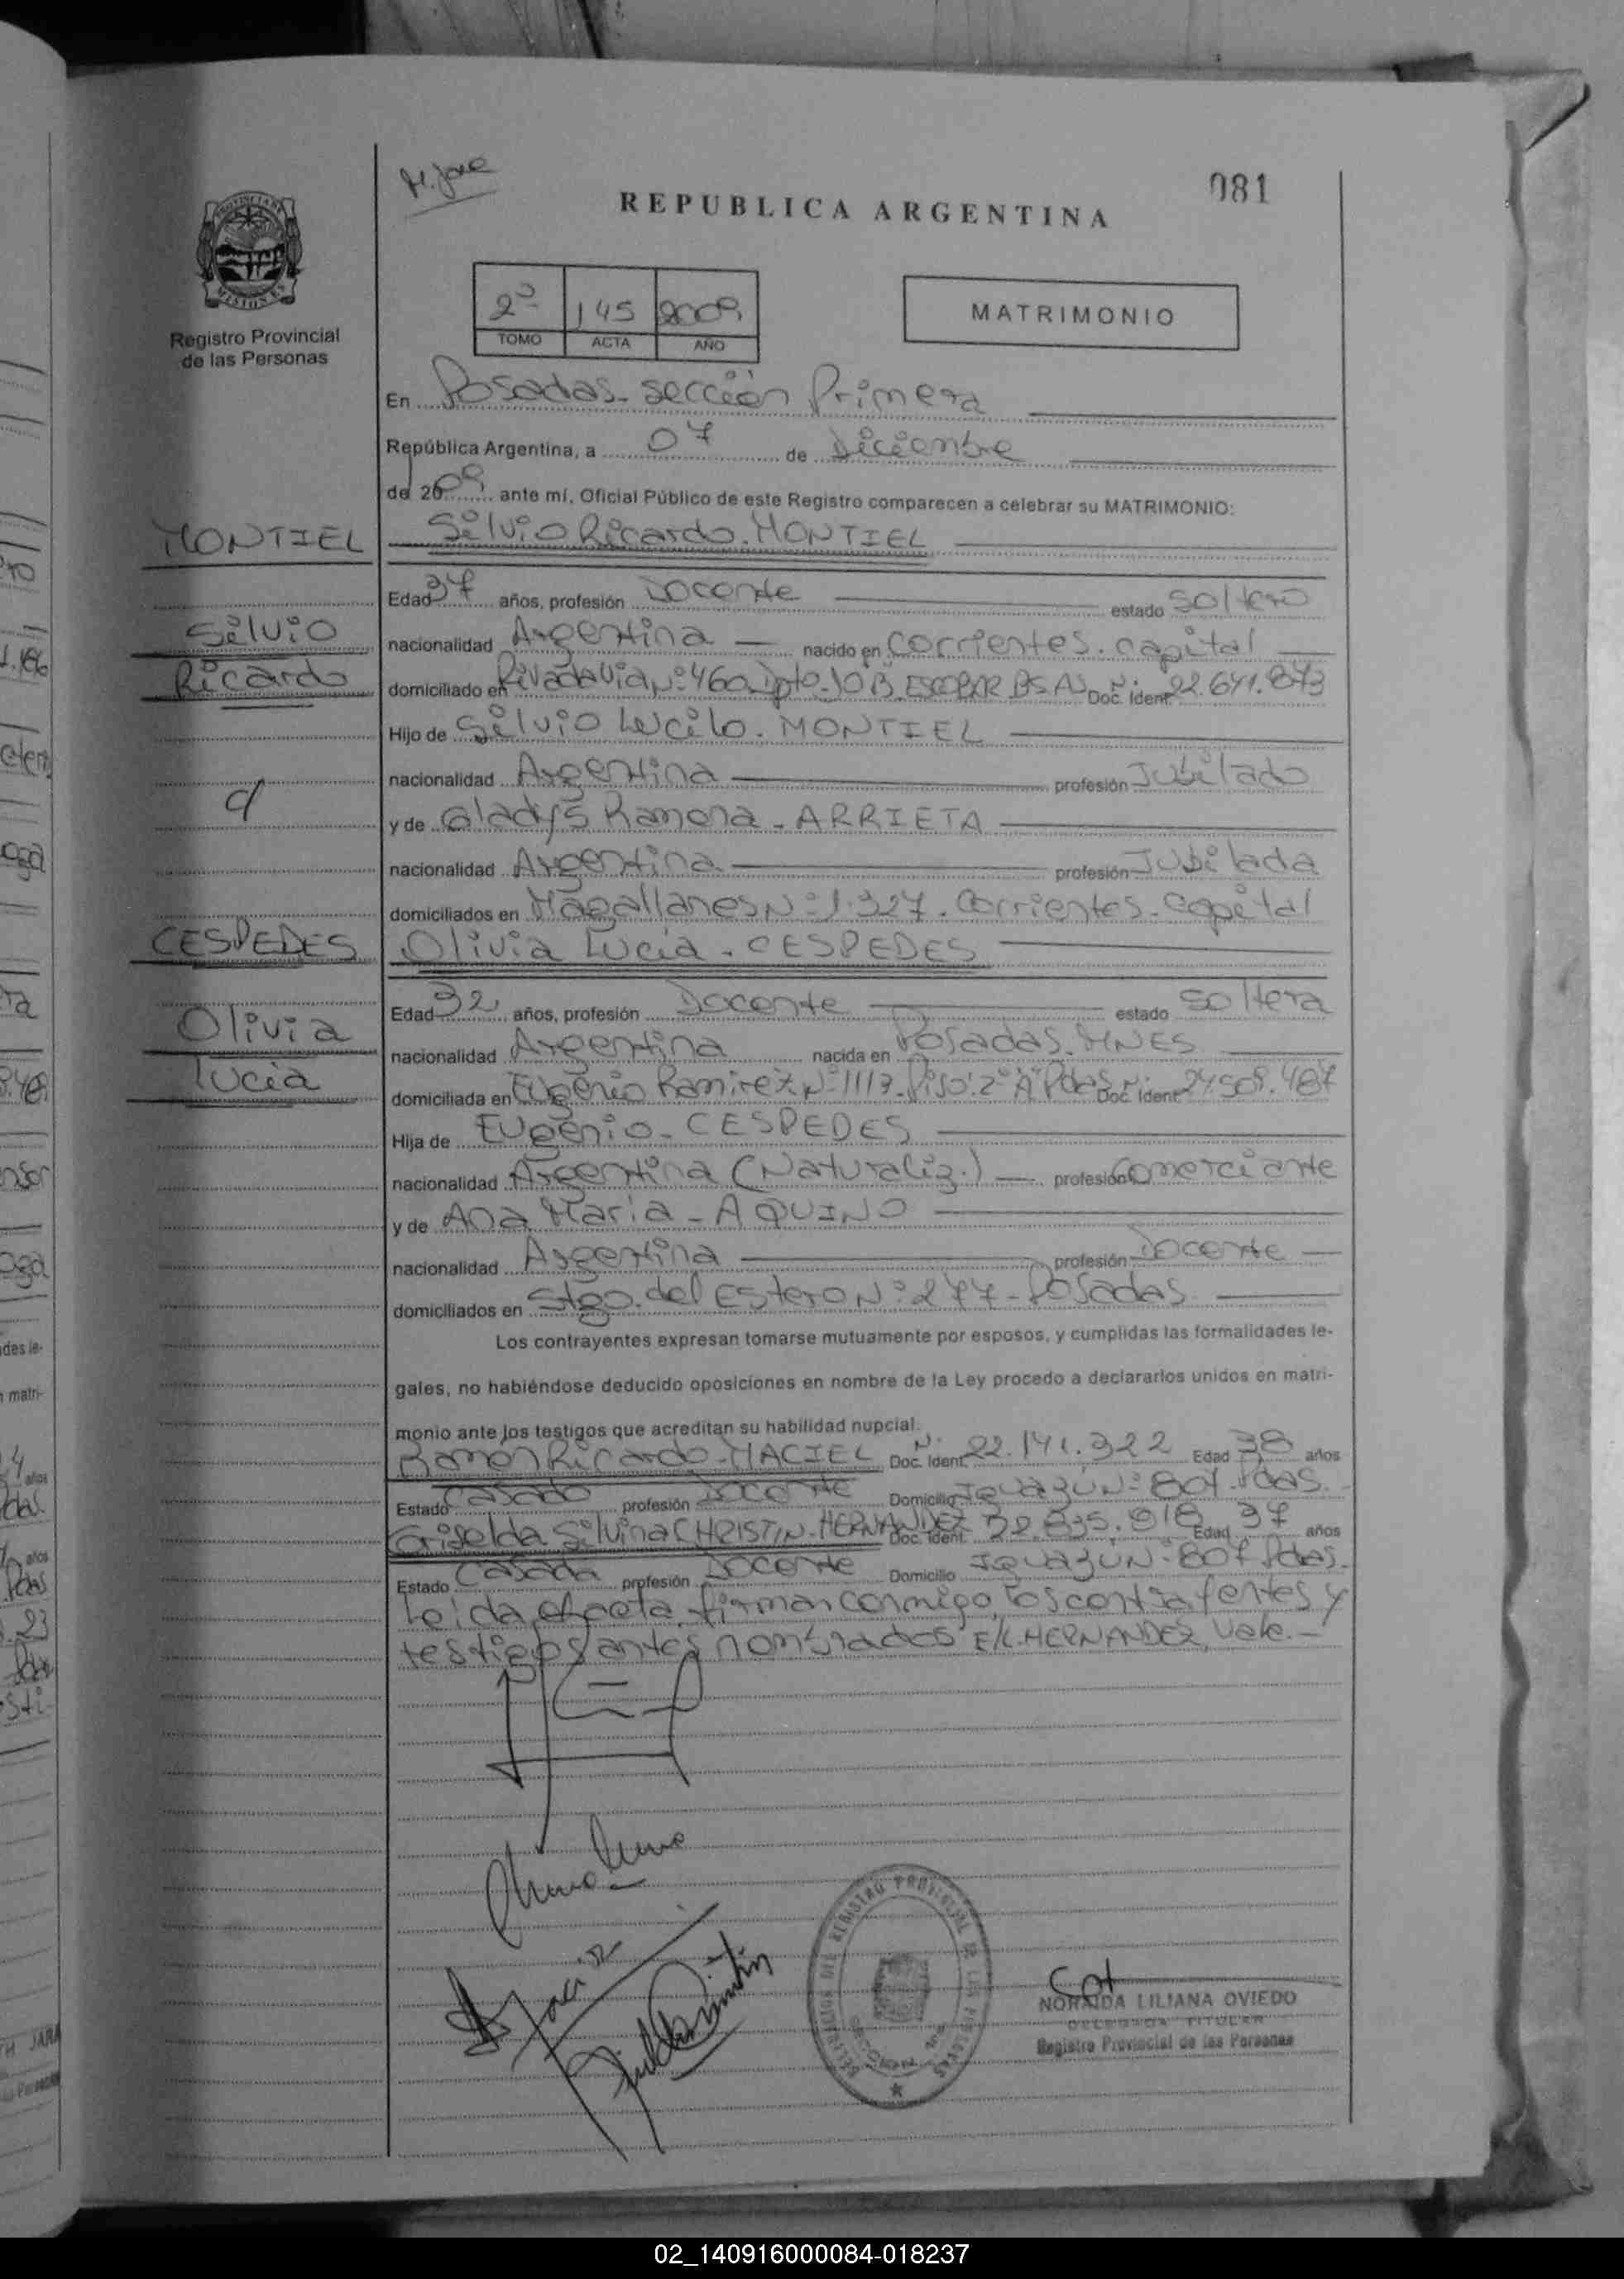 M. José
081
REPUBLICA ARGENTINA
PROVINCIA DE
MISIONES
Registro Provincial
de las Personas
2º 145 2009
TOMO ACTA AÑO
MATRIMONIO
En Posadas - sección Primera
República Argentina, a 07 de Diciembre
de 2009 ante mí, Oficial Público de este Registro comparecen a celebrar su MATRIMONIO:
MONTIEL
Silvio Ricardo. MONTIEL
Edad 37 años, profesión Docente estado soltero
Silvio
nacionalidad Argentina nacido en Corrientes. capital
Ricardo
domiciliado en Rivadavia Nº 460 Dpto. 10 B. ESCOBAR BS. AS. Doc. Ident. 22.641.873
Hijo de Silvio Lucilo. MONTIEL
nacionalidad Argentina profesión Jubilado
c/
y de Gladys Ramona - ARRIETA
nacionalidad Argentina profesión Jubilada
domiciliados en Magallanes Nº 1.327. Corrientes - capital
CESPEDES
Olivia Lucia - CESPEDES
Edad 32 años, profesión Docente estado soltera
Olivia
nacionalidad Argentina nacida en Posadas. MNES
Lucia
domiciliada en Eugenio Ramirez Nº 1113 - Piso: 2º "A" Pdas Doc. Ident.
Hija de Eugenio - CESPEDES
nacionalidad Argentina (Naturaliz.) profesión Comerciante
y de Ana Maria - AQUINO
nacionalidad Argentina profesión Docente
domiciliados en Stgo. del Estero Nº 277 - Posadas
Los contrayentes expresan tomarse mutuamente por esposos, y cumplidas las formalidades le-
gales, no habiéndose deducido oposiciones en nombre de la Ley procedo a declararlos unidos en matri-
monio ante los testigos que acreditan su habilidad nupcial.
Ramon Ricardo - MACIEL Doc. Ident. 22.141.322 Edad 38 años
Estado Casado profesión Docente Domicilio Iguazú Nº 807 Pdas.
Griselda Silvina CHRISTIN - HERNANDEZ Doc. Ident. Edad 37 años
Estado Casada profesión Docente Domicilio Iguazú Nº 807 Pdas.
Leida el acta, firman conmigo, los contrayentes y
testigos antes nombrados E/L. HERNANDEZ, Vale. -
NORAIDA LILIANA OVIEDO
DELEGADA TITULAR
Registro Provincial de las Personas
02_140916000084-018237